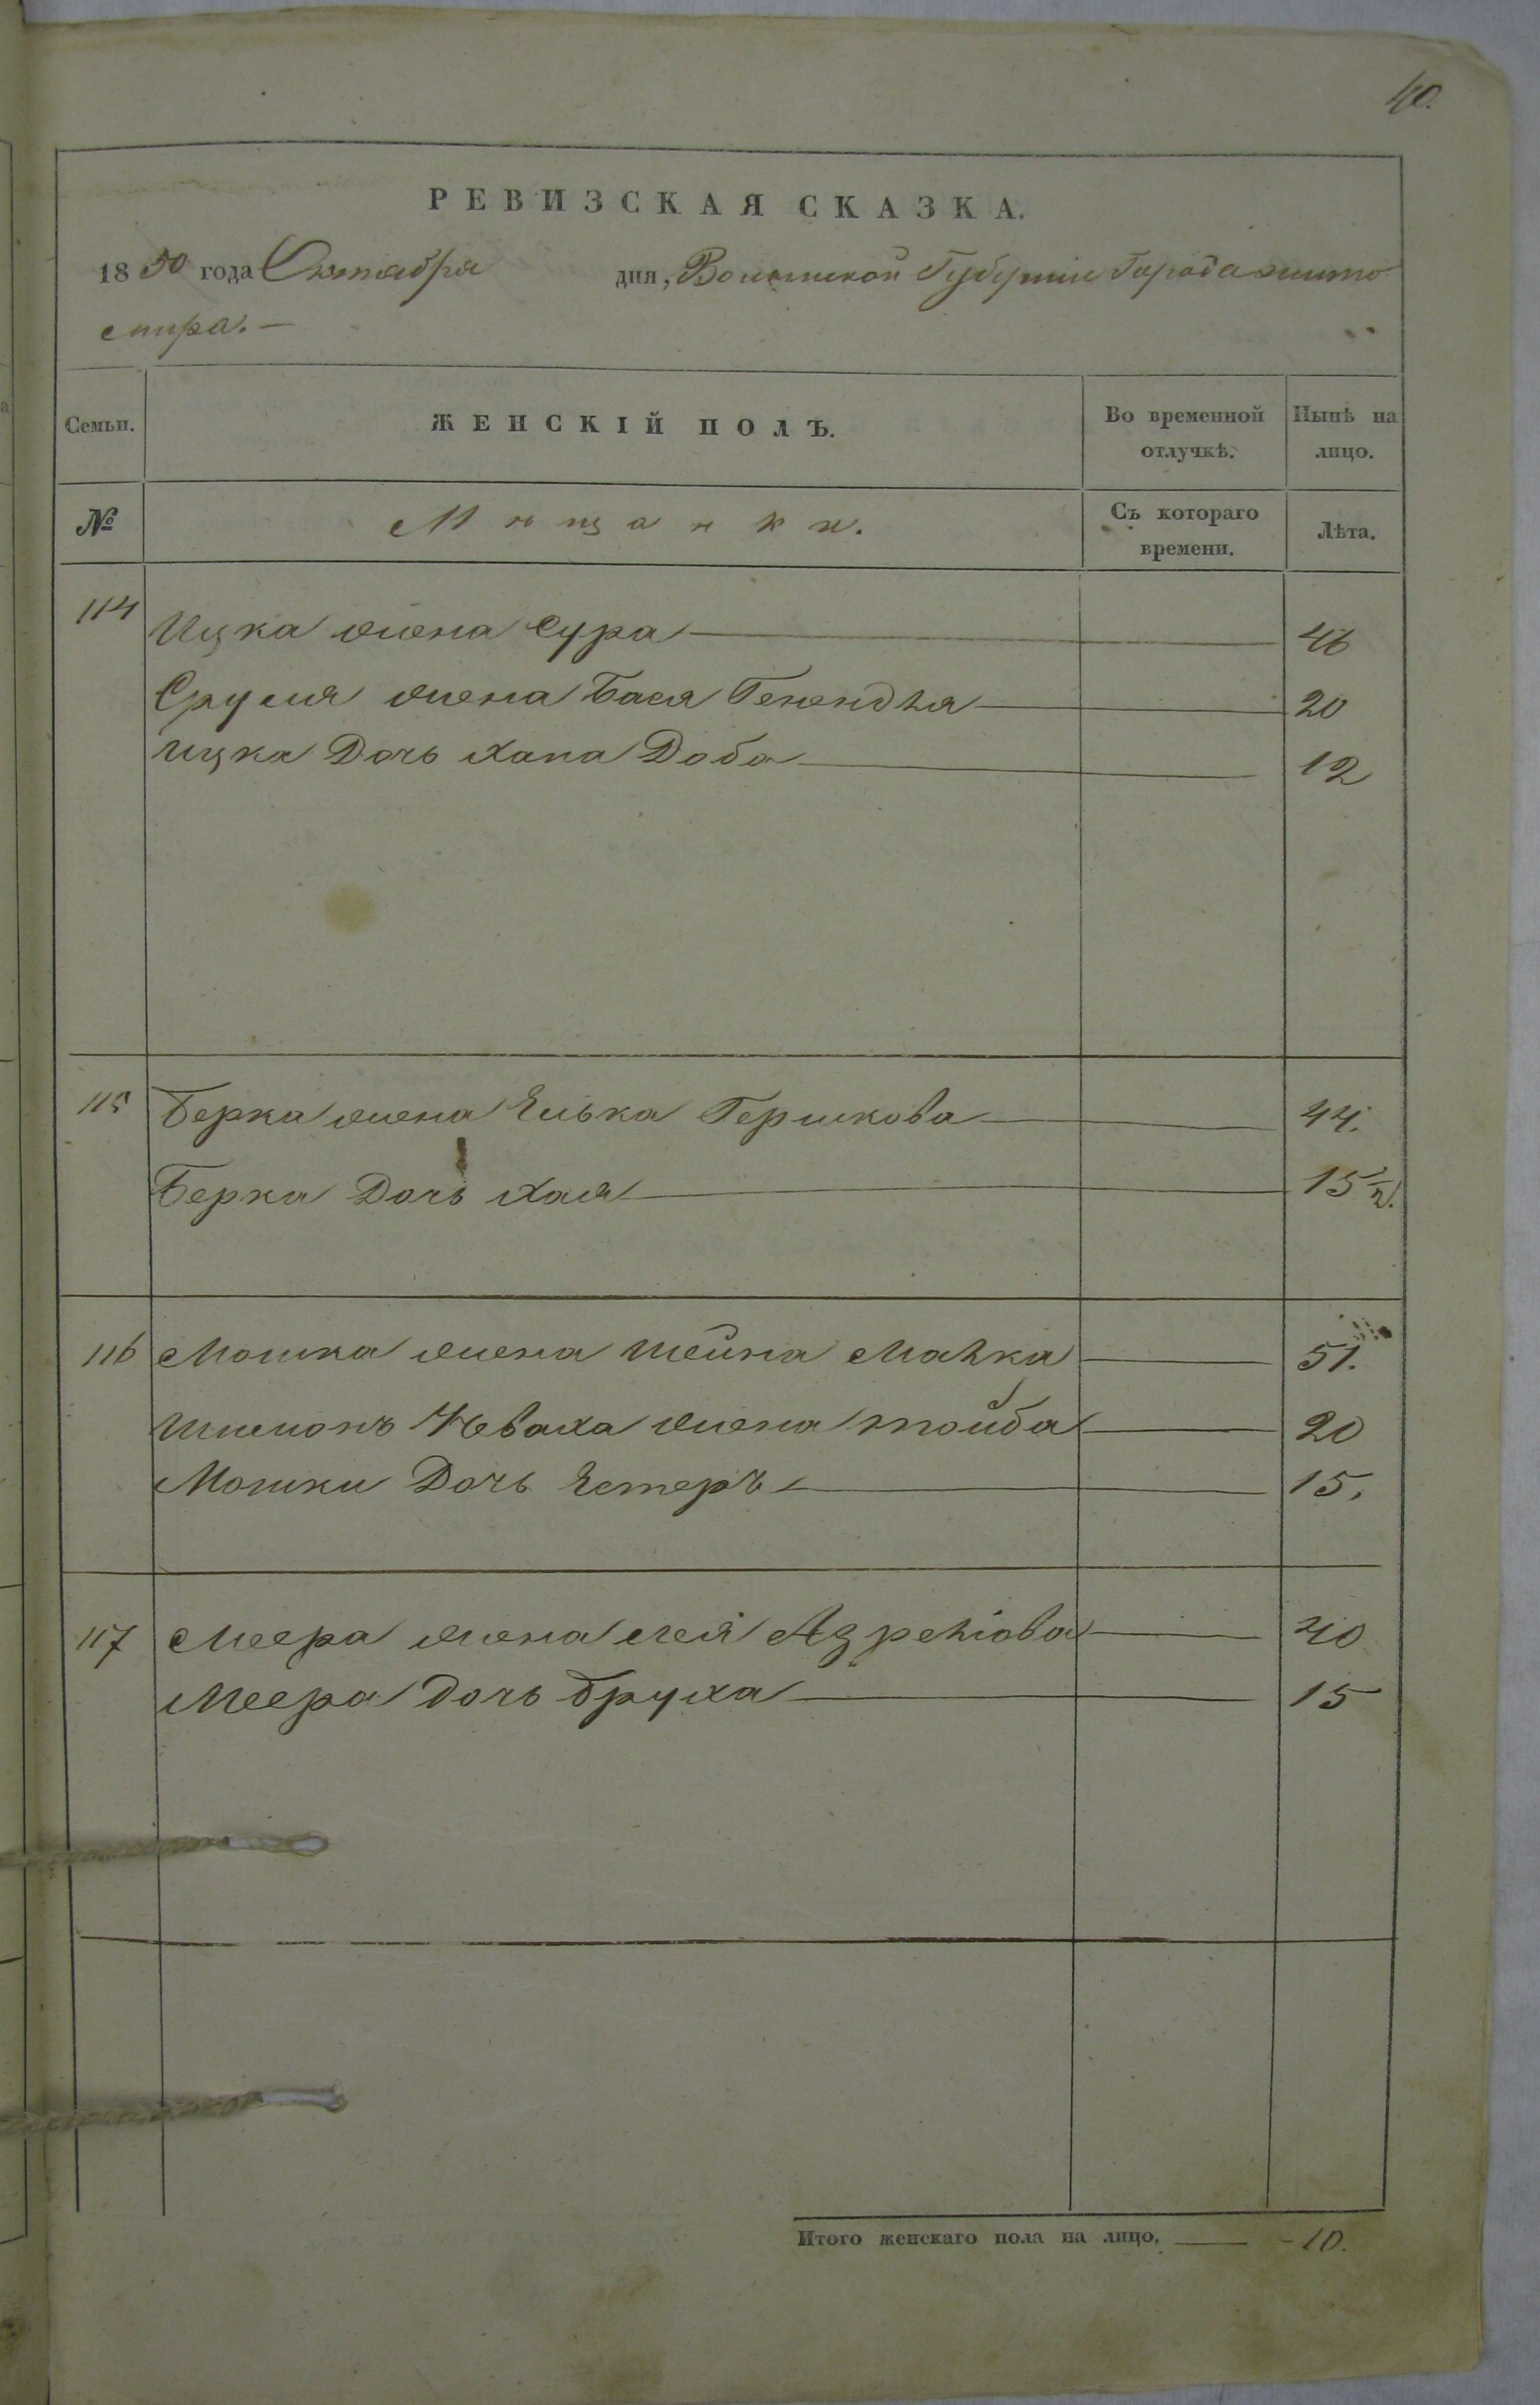 40.
РЕВИЗСКАЯ СКАЗКА.
1850 года Октября дня, Волынской Губернии Города Жито
мира.—
Семьи. ЖЕНСКІЙ ПОЛЪ. Во временной отлучкѣ. Нынѣ на лицо.
№ Мѣщанки. Съ котораго времени. Лѣта.
114 Ицка жена Сура 46
Сруля жена Бася Генендля 20
Ицка Дочь Хана Доба 12
115 Берка жена Елька Гершкова 44.
Берка Дочь Хая 15 1/2.
116 Мошка жена Шейна Малка 51.
Шлемонъ Неваха жена Тойба 20
Мошки Дочь Естеръ 15.
117 Меера жена Лея 40
Меера дочь Бруха 15
Итого женскаго пола на лицо. — 10.